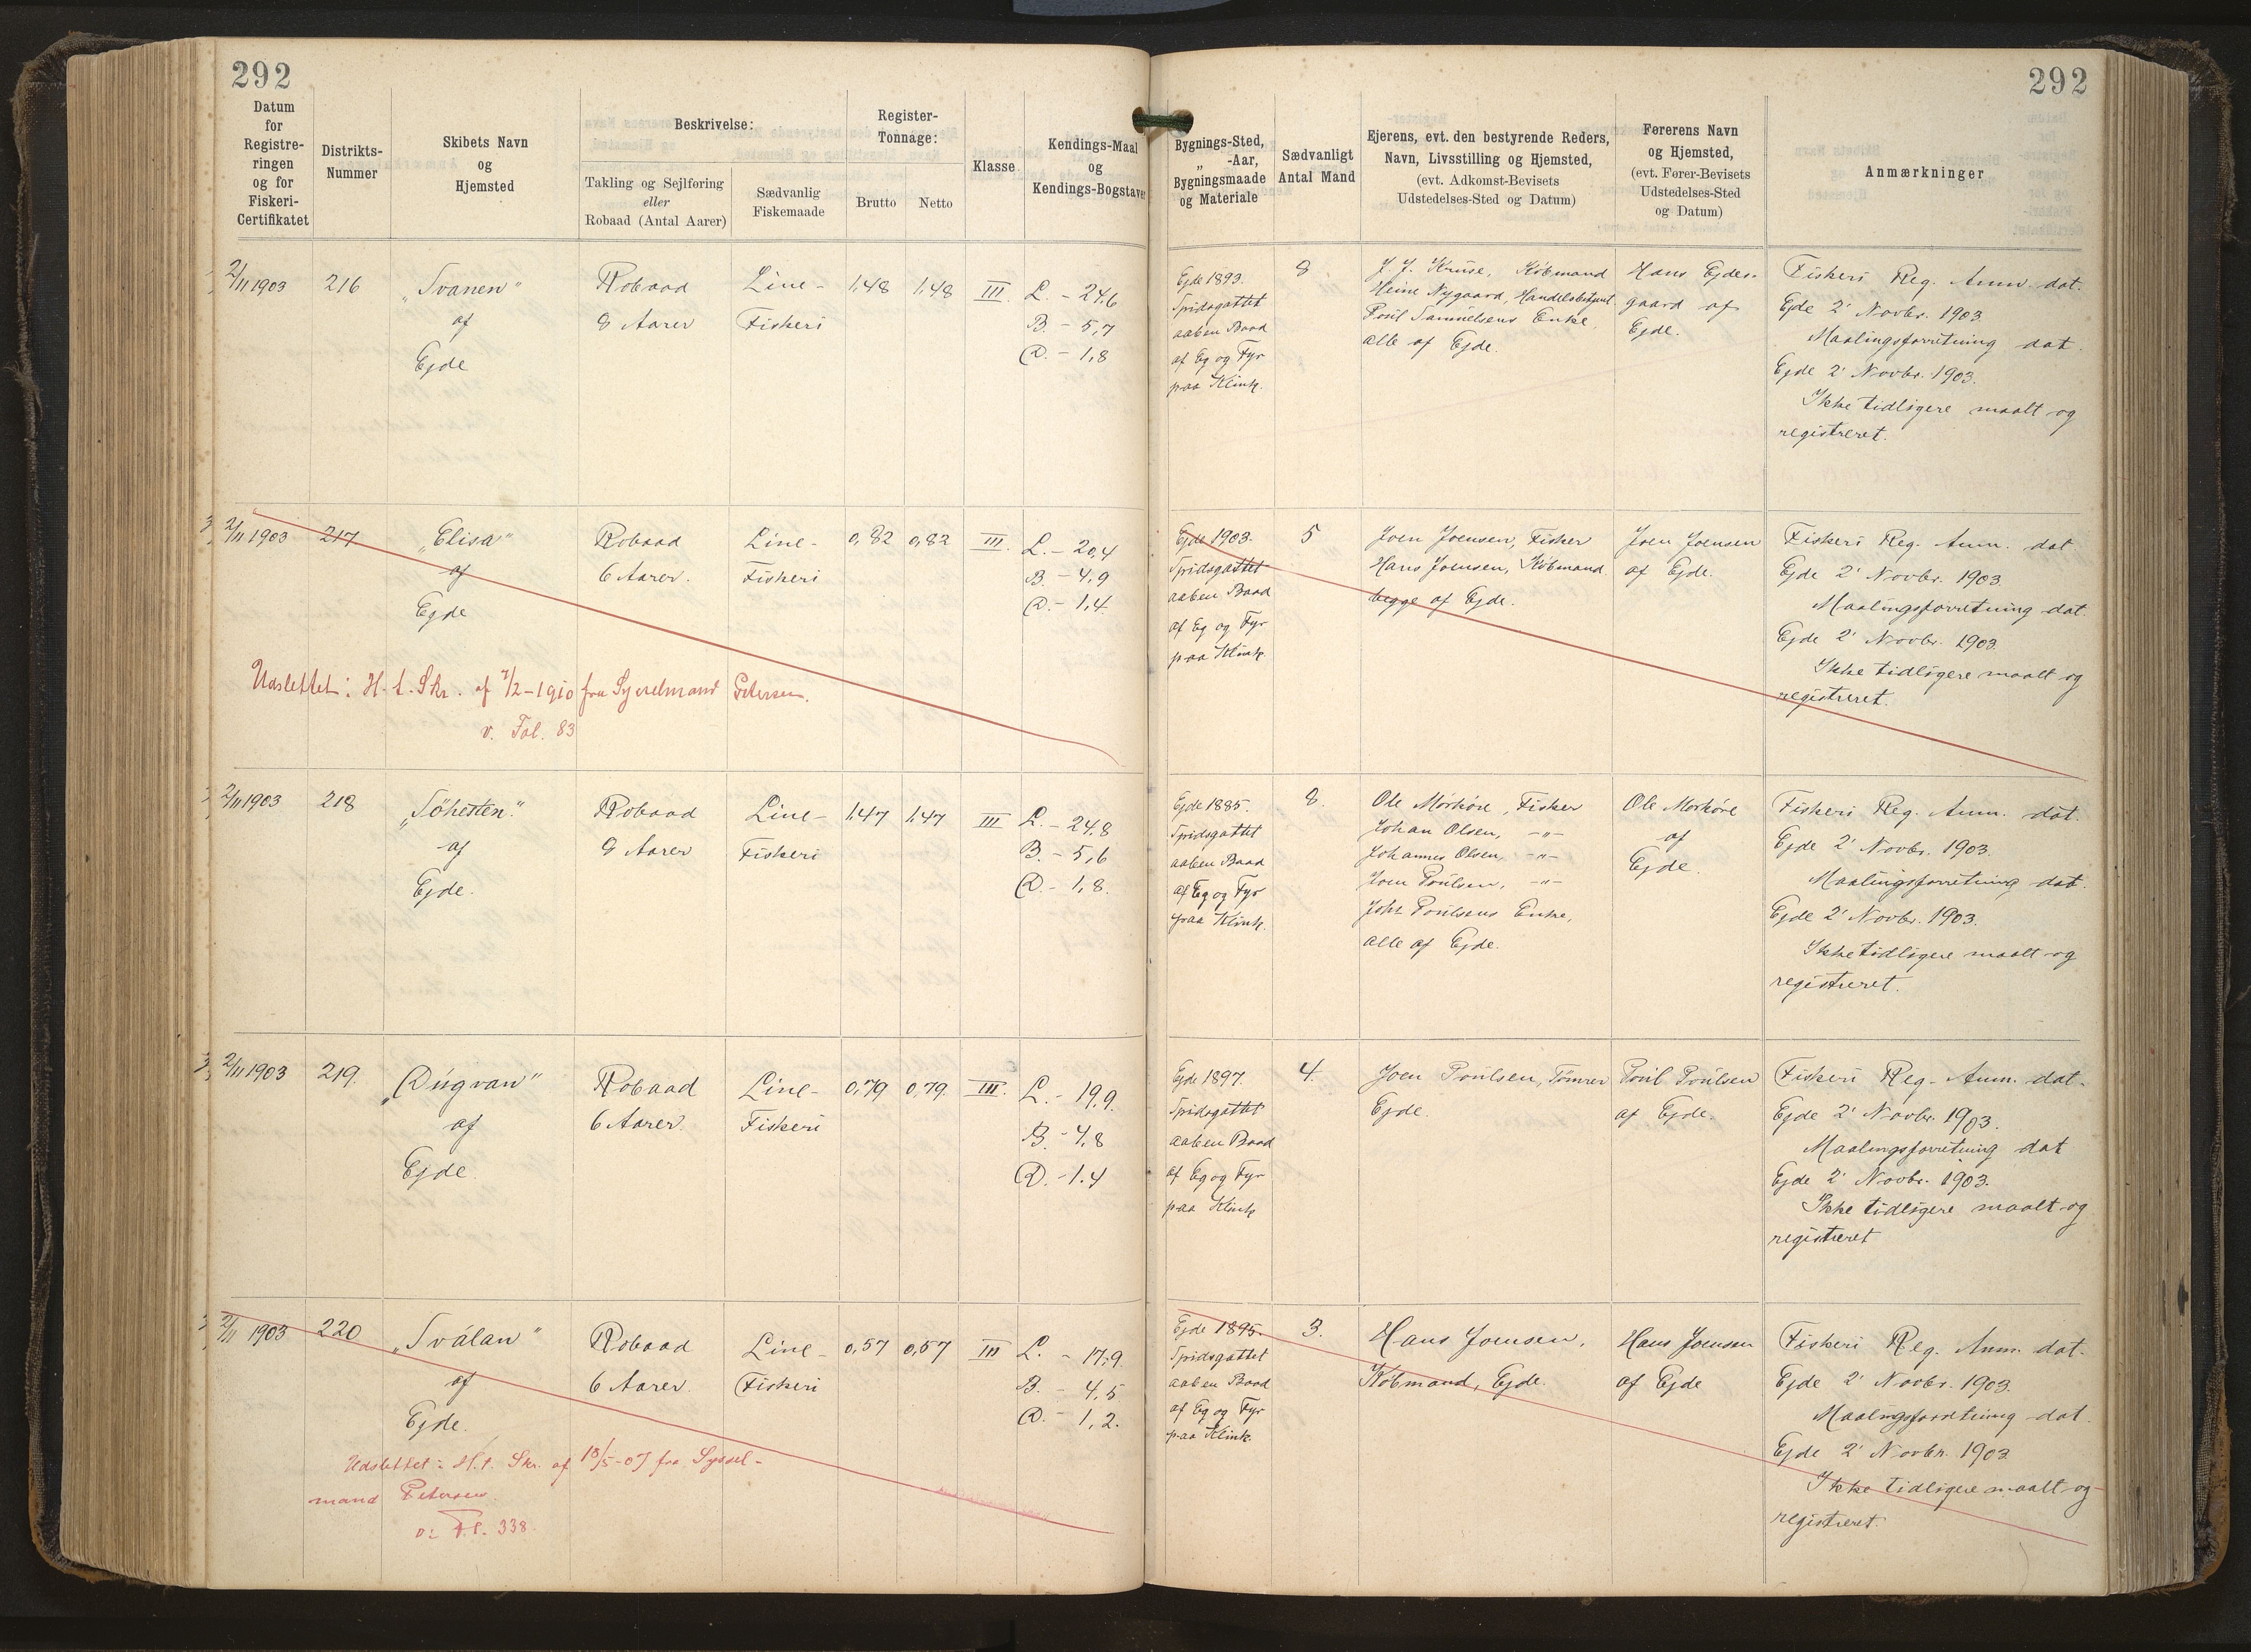 292
292
Datum
for
Registre-
ringen
og for
Fiskeri-
Certifikatet
Distrikts-
Nummer
Skibets Navn
og
Hjemsted
Beskrivelse:
Takling og Sejlføring
eller
Robaad (Antal Aarer)
Sædvanlig
Fiskemaade
Register-
Tonnage:
Brutto
Netto
Klasse
Kendings-Maal
og
Kendings-Bogstaver
Bygnings-Sted,
„ -Aar,
Bygningsmaade
og Materiale
Sædvanligt
Antal Mand
Ejerens, evt. den bestyrende Reders,
Navn, Livsstilling og Hjemsted,
(evt. Adkomst-Bevisets
Udstedelses-Sted og Datum)
Førerens Navn
og Hjemsted,
(evt. Fører-Bevisets
Udstedelses-Sted
og Datum)
Anmærkninger
2/11 1903
216
„Svanen"
af
Ejde
Robaad
8 Aarer
Line-
Fiskeri
1,48
1,48
III.
L. - 24,6
B. - 5,7
D. - 1,8
Ejde 1893.
Spidsgattet
aaben Baad
af Eg og Fyr
paa Klink.
8
J. J. Kruse, Købmand
Heine Nygaard, Handelsbestyrer
Poul Samuelsens Enke,
alle af Ejde.
Hans Ejdes-
gaard af
Ejde.
Fiskeri Reg. Anm. dat.
Ejde 2' Novbr. 1903.
Maalingsforretning dat.
Ejde 2' Novbr. 1903.
Ikke tidligere maalt og
registreret.
2/11 1903
217.
„Elisa"
af
Ejde
Robaad
6 Aarer.
Line-
Fiskeri
0,82
0,82
III.
L. - 20,4
B. - 4,9
D. - 1,4.
Ejde 1903.
Spidsgattet
aaben Baad
af Eg og Fyr
paa Klink.
5
Joen Joensen, Fisker
Hans Joensen, Købmand
begge af Ejde.
Joen Joensen
af Ejde.
Fiskeri Reg. Anm. dat
Ejde 2' Novbr. 1903.
Maalingsforretning dat.
Ejde 2' Novbr. 1903.
Ikke tidligere maalt og
registreret.
Udslettet: H. t. Skr. af 7/2-1910 fra Sysselmand Petersen.
v. Fol. 83
2/11 1903
218
„Söhesten."
af
Ejde.
Robaad
8 Aarer
Line-
Fiskeri
1,47
1,47
III
L. - 24,8
B. - 5,6
D. - 1,8.
Ejde 1885.
Spidsgattet
aaben Baad
af Eg og Fyr
paa Klink.
8.
Ole Mørköre, Fisker
Johan Olsen, -"-
Johannes Olsen, -"-
Joen Poulsen, -"-
Johs Poulsens Enke,
alle af Ejde.
Ole Mørköre
af
Ejde.
Fiskeri Reg. Anm. dat.
Ejde 2' Novbr. 1903.
Maalingsforretning dat.
Ejde 2' Novbr. 1903.
Ikke tidligere maalt og
registreret.
2/11 1903
219.
„Dúgvan"
af
Ejde.
Robaad
6 Aarer.
Line-
Fiskeri
0,79
0,79.
III.
L. - 19,9.
B. - 4,8
D. - 1.4
Ejde 1897.
Spidsgattet
aaben Baad
af Eg og Fyr
paa Klink
4.
Joen Poulsen, Tömrer
Ejde.
Poul Poulsen
af Ejde.
Fiskeri Reg. Anm. dat.
Ejde 2' Novbr. 1903.
Maalingsforretning dat
Ejde 2' Novbr. 1903.
Ikke tidligere maalt og
registreret
2/11 1903
220
„Sválan"
af
Ejde.
Robaad
6 Aarer.
Line-
Fiskeri
0,57
0,57
III
L. - 17,9.
B. - 4,5
D. - 1,2.
Ejde 1895.
Spidsgattet
aaben Baad
af Eg og Fyr
paa Klink.
3.
Hans Joensen,
Købmand, Ejde.
Hans Joensen
af Ejde
Fiskeri Reg. Anm. dat.
Ejde 2' Novbr. 1903.
Maalingsforretning dat.
Ejde 2' Novbr. 1903
Ikke tidligere maalt og
registreret.
Udslettet: H. t. Skr. af 18/5-07 fra Syssel-
mand Petersen.
v: Fol. 338